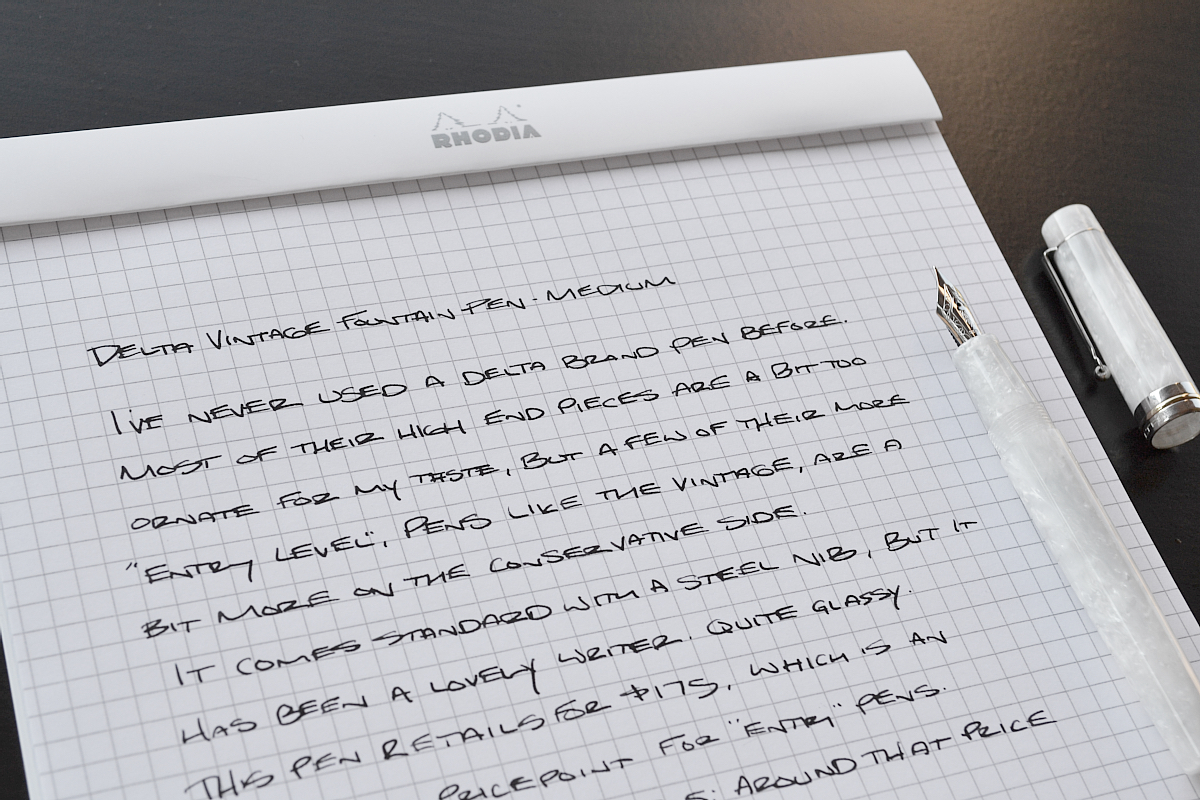 RHODIA
DELTA VINTAGE FOUNTAIN PEN - MEDIUM
I'VE NEVER USED A DELTA BRAND PEN BEFORE.
MOST OF THEIR HIGH END PIECES ARE A BIT TOO
ORNATE FOR MY TASTE, BUT A FEW OF THEIR MORE
"ENTRY LEVEL", PENS LIKE THE VINTAGE, ARE A
BIT MORE ON THE CONSERVATIVE SIDE.
IT COMES STANDARD WITH A STEEL NIB, BUT IT
HAS BEEN A LOVELY WRITER. QUITE GLASSY.
THIS PEN RETAILS FOR $175, WHICH IS AN
PRICEPOINT FOR "ENTRY" PENS.
AROUND THAT PRICE